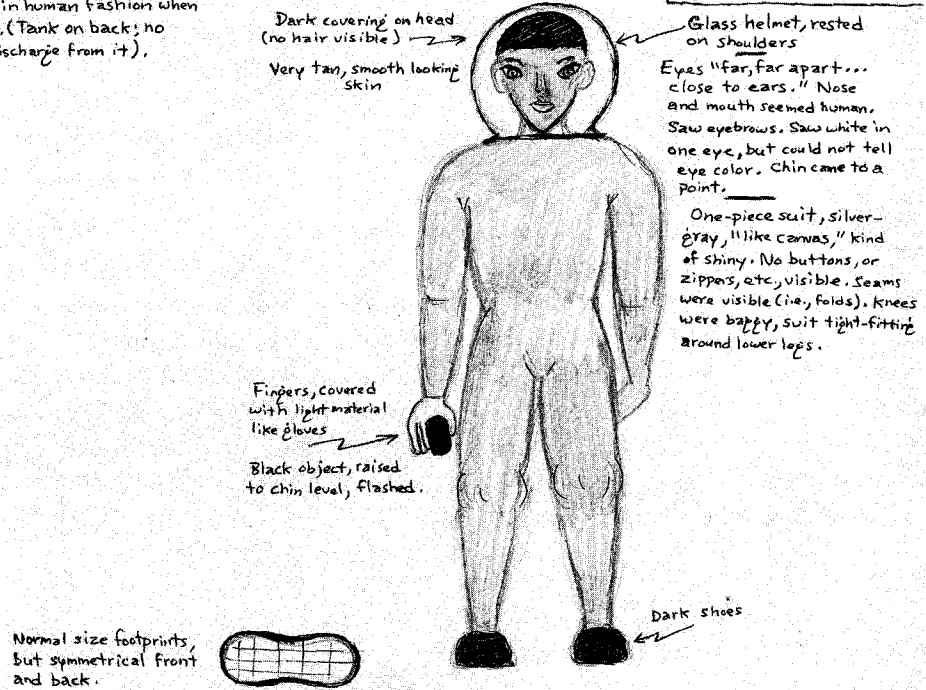 in human fashion when
(Tank on back; no
discharge from it).
Dark covering on head
(no hair visible)
Very tan, smooth looking
skin
Glass helmet, rested
on shoulders
Eyes "far, far apart...
close to ears." Nose
and mouth seemed human.
Saw eyebrows. Saw white in
one eye, but could not tell
eye color. Chin came to a
point.
One-piece suit, silver-
gray, "like canvas," kind
of shiny. No buttons, or
zippers, etc., visible. Seams
were visible (i.e., folds). Knees
were baggy, suit tight-fitting
around lower legs.
Fingers, covered
with light material
like gloves
Black object, raised
to chin level, flashed.
Dark shoes
Normal size footprints,
but symmetrical front
and back.